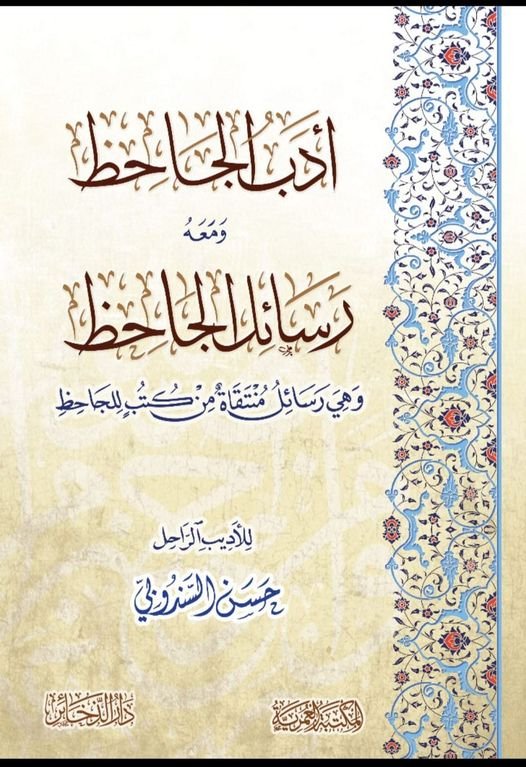 أدَبُ الجَاحِظ
وَمَعَهُ
رَسَائِل الجَاحِظ
وَهِيَ رَسَائِلُ مُنْتَقَاةٌ مِنْ كُتُبٍ لِلجَاحِظِ
لِلأَدِيبِ الرَّاحِلِ
حَسَن السَّنْدُوبيّ
المكتبة العمرية
دَارُ الذَّخَائِر